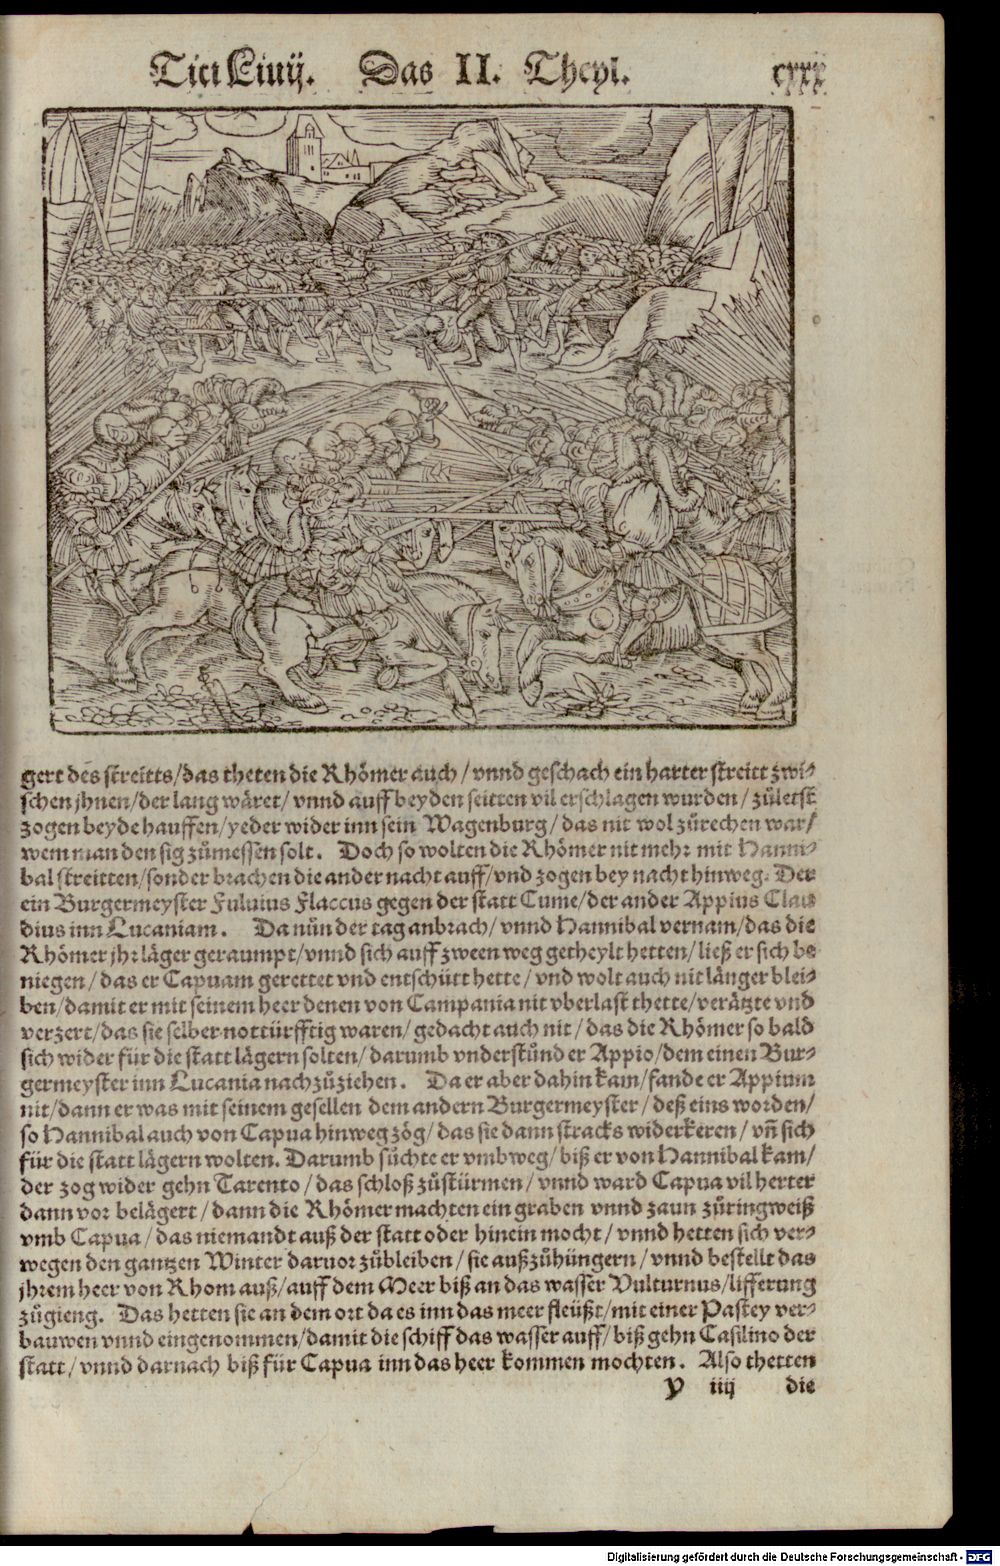 Titi Liuij. Das II. Theyl. cxxx
gert des streitts/das theten die Rhömer auch/vnnd geschach ein harter streitt zwi-
schen jhnen/der lang wäret/vnnd auff beyden seitten vil erschlagen wurden/zůletst
zogen beyde hauffen/yeder wider inn sein Wagenburg/das nit wol zůrechen war/
wem man den sig zůmessen solt. Doch so wolten die Rhömer nit mehr mit Hanni-
bal streitten/sonder brachen die ander nacht auff/vnd zogen bey nacht hinweg. Der
ein Burgermeyster Fuluius Flaccus gegen der statt Cume/der ander Appius Clau
dius inn Lucaniam. Da nůn der tag anbrach/vnnd Hannibal vernam/das die
Rhömer jhr läger geraumpt/vnnd sich auff zween weg getheylt hetten/ließ er sich be
niegen/das er Capuam gerettet vnd entschütt hette/vnd wolt auch nit länger blei-
ben/damit er mit seinem heer denen von Campania nit vberlast thette/verätzte vnd
verzert/das sie selber nottürfftig waren/gedacht auch nit/das die Rhömer so bald
sich wider für die statt lägern solten/darumb vnderstůnd er Appio/dem einen Bur-
germeyster inn Lucania nachzůziehen. Da er aber dahin kam/fande er Appium
nit/dann er was mit seinem gesellen dem andern Burgermeyster/deß eins worden/
so Hannibal auch von Capua hinweg zög/das sie dann stracks widerkeren/vñ sich
für die statt lägern wolten. Darumb sůchte er vmbweg/biß er von Hannibal kam/
der zog wider gehn Tarento/das schloß zůstürmen/vnnd ward Capua vil herter
dann vor belägert/dann die Rhömer machten ein graben vnnd zaun zůringweiß
vmb Capua/das niemandt auß der statt oder hinein mocht/vnnd hetten sich ver-
wegen den gantzen Winter daruor zůbleiben/sie außzůhüngern/vnnd bestellt das
jhrem heer von Rhom auß/auff dem Meer biß an das wasser Vulturnus/lifferung
zůgieng. Das hetten sie an dem ort da es inn das meer fleüßt/mit einer Pastey ver-
bauwen vnnd eingenommen/damit die schiff das wasser auff/biß gehn Casilino der
statt/vnnd darnach biß für Capua inn das heer kommen mochten. Also thetten
y iiij die
Digitalisierung gefördert durch die Deutsche Forschungsgemeinschaft - DFG